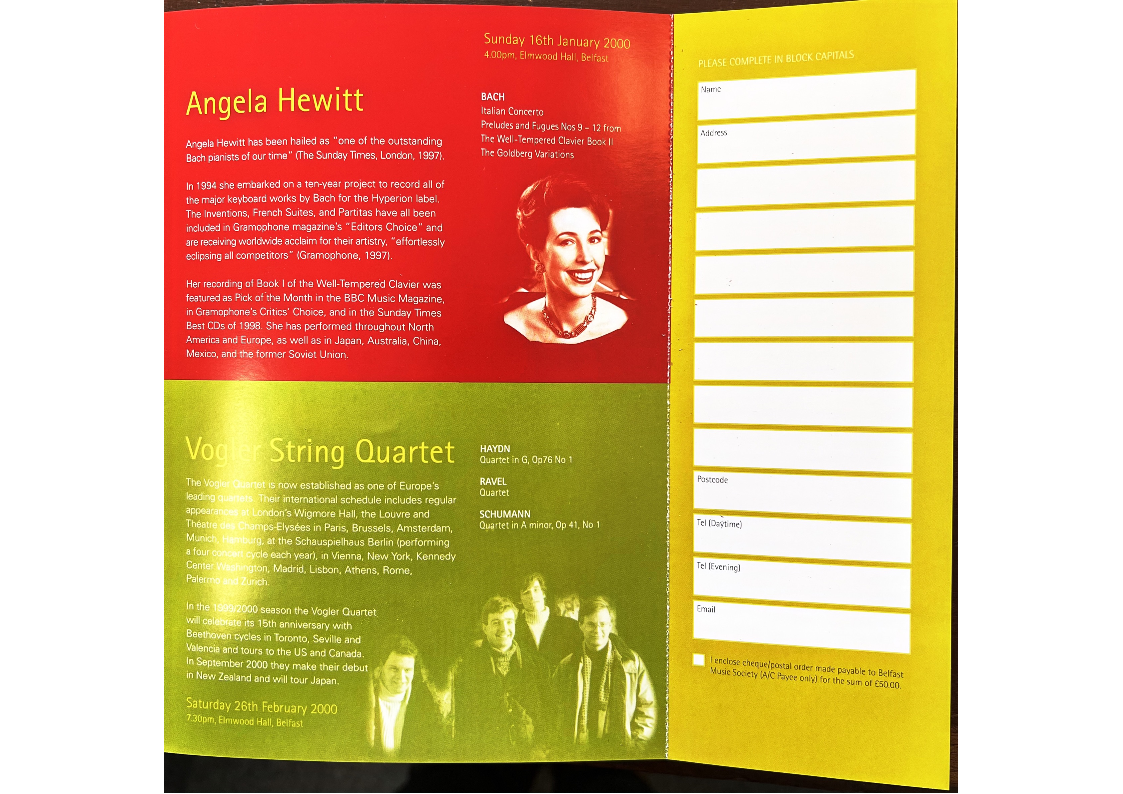 Angela Hewitt
Angela Hewitt has been hailed as "one of the outstanding
Bach pianists of our time" (The Sunday Times, London, 1997).
In 1994 she embarked on a ten-year project to record all of
the major keyboard works by Bach for the Hyperion label.
The Inventions, French Suites, and Partitas have all been
included in Gramophone magazine's "Editors Choice" and
are receiving worldwide acclaim for their artistry, "effortlessly
eclipsing all competitors" (Gramophone, 1997).
Her recording of Book I of the Well-Tempered Clavier was
featured as Pick of the Month in the BBC Music Magazine,
in Gramophone's Critics' Choice, and in the Sunday Times
Best CDs of 1998. She has performed throughout North
America and Europe, as well as in Japan, Australia, China,
Mexico, and the former Soviet Union.
Sunday 16th January 2000
4.00pm, Elmwood Hall, Belfast
BACH
Italian Concerto
Preludes and Fugues Nos 9 - 12 from
The Well-Tempered Clavier Book II
The Goldberg Variations
Vogler String Quartet
The Vogler Quartet is now established as one of Europe's
leading quartets. Their international schedule includes regular
appearances at London's Wigmore Hall, the Louvre and
Théatre des Champs-Elysées in Paris, Brussels, Amsterdam,
Munich, Hamburg, at the Schauspielhaus Berlin (performing
a four concert cycle each year), in Vienna, New York, Kennedy
Center Washington, Madrid, Lisbon, Athens, Rome,
Palermo and Zurich.
In the 1999/2000 season the Vogler Quartet
will celebrate its 15th anniversary with
Beethoven cycles in Toronto, Seville and
Valencia and tours to the US and Canada.
In September 2000 they make their debut
in New Zealand and will tour Japan.
Saturday 26th February 2000
7.30pm, Elmwood Hall, Belfast
HAYDN
Quartet in G, Op76 No 1
RAVEL
Quartet
SCHUMANN
Quartet in A minor, Op 41, No 1
PLEASE COMPLETE IN BLOCK CAPITALS
Name
Address
Postcode
Tel (Daytime)
Tel (Evening)
Email
I enclose cheque/postal order made payable to Belfast
Music Society (A/C Payee only) for the sum of £50.00.